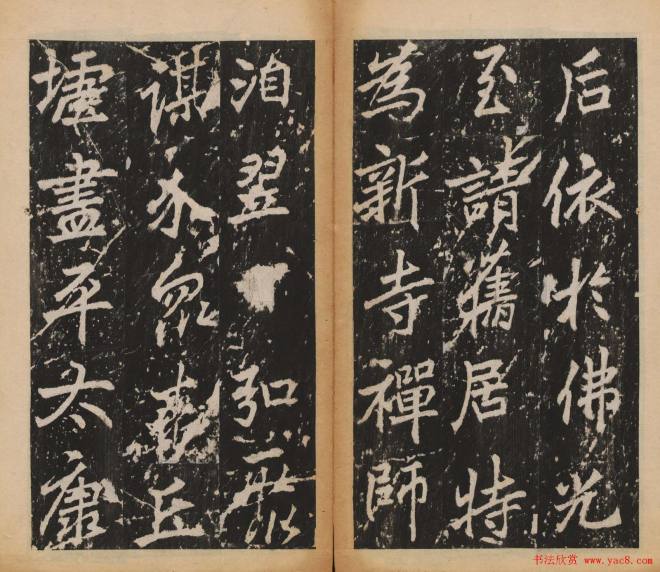 后依於佛光
至請舊居特
為新寺禪師
洎翌弘聚
謀眾丘
墟盡平太康
书法欣赏 www.yac8.com